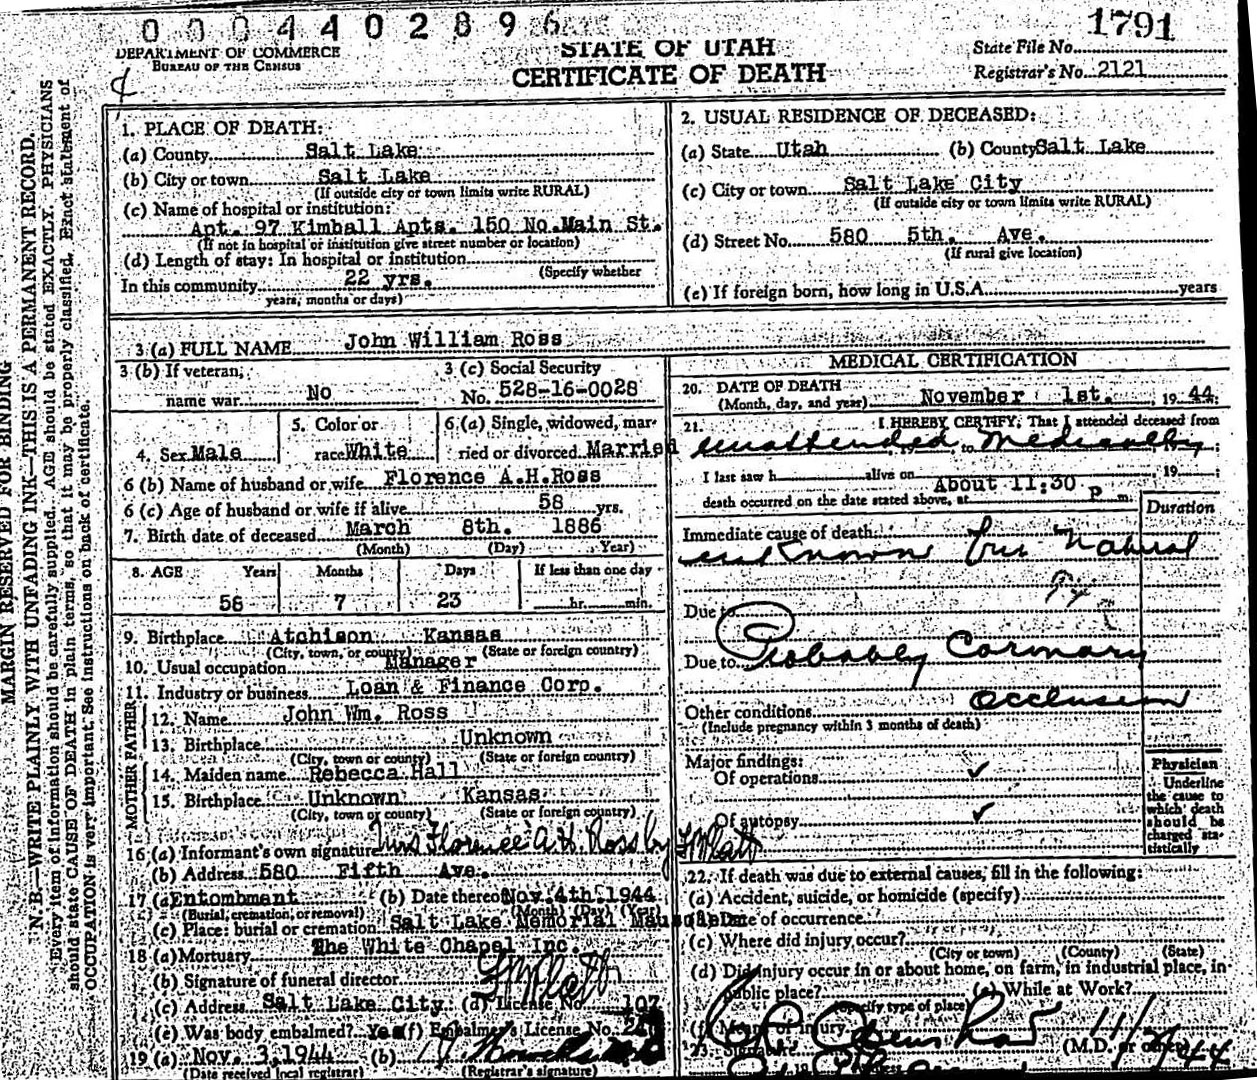 000440296
1791
DEPARTMENT OF COMMERCE
BUREAU OF THE CENSUS
STATE OF UTAH
CERTIFICATE OF DEATH
State File No.
Registrar's No. 2121
MARGIN RESERVED FOR BINDING
N. B.—WRITE PLAINLY WITH UNFADING INK—THIS IS A PERMANENT RECORD.
Every item of information should be carefully supplied. AGE should be stated EXACTLY. PHYSICIANS
should state CAUSE OF DEATH in plain terms, so that it may be properly classified. Exact statement of
OCCUPATION is very important. See instructions on back of certificate.
1. PLACE OF DEATH:
(a) County Salt Lake
(b) City or town Salt Lake
(If outside city or town limits write RURAL)
(c) Name of hospital or institution:
Apt. 97 Kimball Apts. 150 No. Main St.
(If not in hospital or institution give street number or location)
(d) Length of stay: In hospital or institution
(Specify whether
In this community 22 yrs.
years, months or days)
2. USUAL RESIDENCE OF DECEASED:
(a) State Utah (b) County Salt Lake
(c) City or town Salt Lake City
(If outside city or town limits write RURAL)
(d) Street No. 580 5th. Ave.
(If rural give location)
(e) If foreign born, how long in U.S.A. years
3 (a) FULL NAME John William Ross
3 (b) If veteran,
name war No
3 (c) Social Security
No. 528-16-0028
4. Sex Male
5. Color or
race White
6 (a) Single, widowed, mar-
ried or divorced Married
6 (b) Name of husband or wife Florence A.H.Ross
6 (c) Age of husband or wife if alive 58 yrs.
7. Birth date of deceased March 8th. 1886
(Month) (Day) Year)
8. AGE Years Months Days If less than one day
58 7 23 hr. min.
9. Birthplace Atchison Kansas
(City, town, or county) (State or foreign country)
10. Usual occupation Manager
11. Industry or business Loan & Finance Corp.
FATHER
12. Name John Wm. Ross
13. Birthplace Unknown
(City, town or county) (State or foreign country)
MOTHER
14. Maiden name Rebecca Hall
15. Birthplace Unknown Kansas
(City, town or county) (State or foreign country)
16 (a) Informant's own signature Mrs Florence A.H. Ross by
(b) Address 580 Fifth Ave.
17 (a) Entombment (b) Date thereof Nov. 4th. 1944
(Burial, cremation, or removal) (Month) (Day) (Year)
(c) Place: burial or cremation Salt Lake Memorial Mausoleum
18 (a) Mortuary The White Chapel Inc.
(b) Signature of funeral director
(c) Address Salt Lake City (d) License No. 107
(e) Was body embalmed? Yes (f) Embalmer's License No.
19 (a) Nov. 3, 1944 (b)
(Date received local registrar) (Registrar's signature)
MEDICAL CERTIFICATION
20. DATE OF DEATH
(Month, day, and year) November 1st. 1944
21. I HEREBY CERTIFY; That I attended deceased from
unattended medically
I last saw h alive on 19
death occurred on the date stated above, at About 11:30 P m.
Duration
Immediate cause of death:
unknown but Natural
Due to
Due to Probably Coronary
occlusion
Other conditions
(Include pregnancy within 3 months of death)
Major findings:
Of operations ✓
Of autopsy ✓
Physician
Underline
the cause to
which death
should be
charged sta-
tistically
22. If death was due to external causes, fill in the following:
(a) Accident, suicide, or homicide (specify)
(b) Date of occurrence
(c) Where did injury occur?
(City or town) (County) (State)
(d) Did injury occur in or about home, on farm, in industrial place, in
public place? (e) While at Work?
(Specify type of place)
(f) Means of injury
23. Signature (M.D. or other)